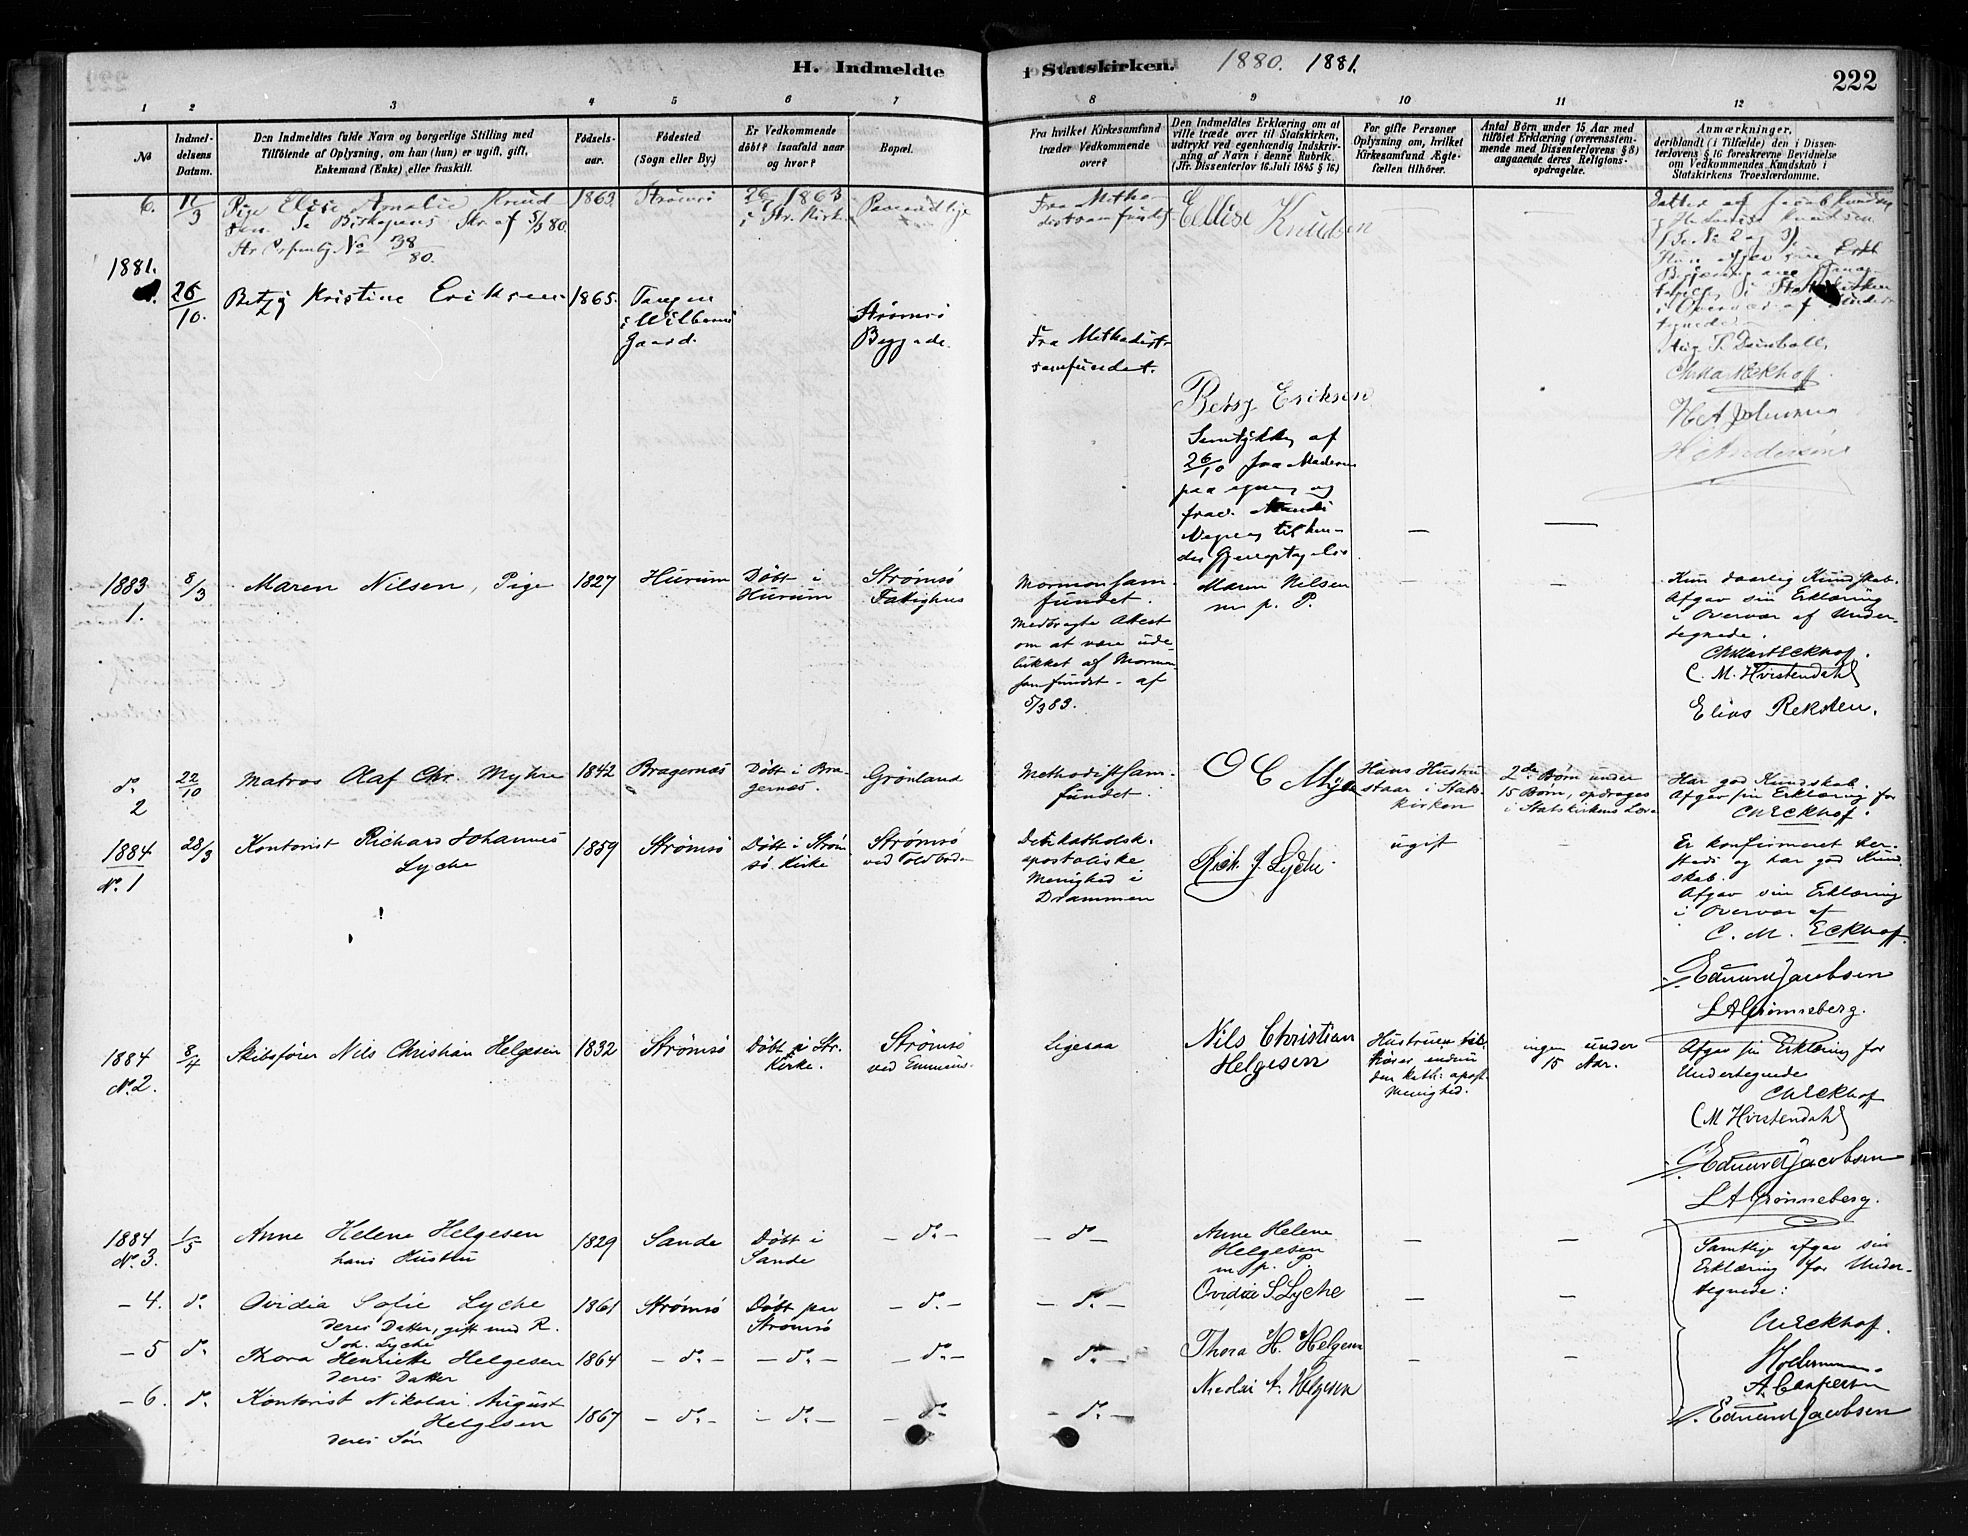 H. Indmeldte i Statskirken. 1880. 1881. 222
1 2 3 4 5 6 7 8 9 10 11 12
No
Indmel-
delsens
Datum.
Den Indmeldtes fulde Navn og borgerlige Stilling med
Tilføiende af Oplysning, om han (hun) er ugift, gift,
Enkemand (Enke) eller fraskilt.
Fødsels-
aar.
Fødested
(Sogn eller By.)
Er Vedkommende
døbt? Isaafald naar
og hvor?
Bopæl.
Fra hvilket Kirkesamfund
træder Vedkommende
over?
Den Indmeldtes Erklæring om at
ville træde over til Statskirken,
udtrykt ved egenhændig Indskriv-
ning af Navn i denne Rubrik.
(Jfr. Dissenterlov 16. Juli 1845 § 16)
For gifte Personer
Oplysning om, hvilket
Kirkesamfund Ægte-
fællen tilhører.
Antal Børn under 15 Aar med
tilføiet Erklæring (overensstem-
mende med Dissenterlovens § 8)
angaaende deres Religions-
opdragelse.
Anmærkninger,
deriblandt (i Tilfælde) den i Dissen-
terlovens § 16 foreskrevne Bevidnelse
om Vedkommendes Kundskab i
Statskirkens Troeslærdomme.
6. 11/3
Pige Elise Amalie Knud
sen
af 5/3 80.
No 38/80.
1863
Strømsø
1863
i Str. Kirke
Fra Metho-
distsamfundet
Ellise Knudsen
Datter af Jacob Knudsen
1881.
26/10.
Betzy Kristine Eriksen
1865.
Tangen
i Wilbergs
Gaard.
Strømsø
Fra Methodist-
samfundet.
Betsy Eriksen
Samtykke af
26/10 fra Moderen
paa egne og
til hen-
des Gjenoptagelse
—
—
1883
1.
8/3
Maren Nilsen, Pige
1827
Hurum
Døbt i
Hurum
Strømsø
Fatighus
Mormonsam-
fundet.
Medbragte Attest
om at være ude-
lukket af Mormon
samfundet - af
5/3 83.
Maren Nilsen
m. p. P.
—
—
Kun daarlig Kundskab.
Afgav sin Erklæring
i Overvær af Under-
tegnede.
C. M. Hvistendahl
Elias Reksten.
do
2
22/10
Matros Olaf Chr. Myhre
1842
Bragernæs
Døbt i Bra-
gernæs.
Grønland
Methodistsam-
fundet.
O C Myhre
Hans Hustru
staar i Stats-
kirken
2de Børn under
15 Børn, opdrages
i Statskirkens Lære
Har god Kundskab.
Afgav sin Erklæring for
CMEckhof.
1884
No. 1
28/3
Kontorist Richard Johannes
Lyche
1859
Strømsø
Døbt i Strøm
sø. Kirke
Strømsø
ved Toldboden
Den katholsk-
apostoliske
Menighed i
Drammen
Rich. J. Lyche.
ugift
—
Er konfirmeret her-
steds og har god Kund-
skab.
Afgav sin Erklæring
i Overvær af
C. M. Eckhof.
Edvard Jacobsen
L A Grønneberg.
1884
No. 2.
8/4
Skibsfører Nils Christian Helgesen
1832
Strømsø
Døbt i Str.
Kirke.
Strømsø
ved Emmaus.
Ligesaa
Nils Christian
Helgesen
Hustruen til-
hører endnu
den kath: apost.
Menighed.
ingen under
15 Aar.
Afgav sin Erklæring for
Undertegnede
CMEckhof
C M Hvistendahl
Edvard Jacobsen
L A Grønneberg.
1884
No. 3.
1/5
Anne Helene Helgesen
hans Hustru
1829
Sande
Døbt i
Sande
— do —
— do —
Anne Helene
Helgesen
m. p. P.
—
—
Samtlige afgav sin
Erklæring for Under-
tegnede:
CMEckhof.
A. Caspersen
Edvard Jacobsen
— 4. do
Ovidia Sofie Lyche
deres Datter, gift med R.
Joh. Lyche
1861
Strømsø
Døbt paa
Strømsø
— do —
— do —
Ovidia S Lyche
—
—
— 5 do
Thora Henriette Helgesen
deres Datter
1864
— do —
— do —
— do —
do —
Thora H. Helgesen
—
—
— 6. do
Kontorist Nikolai August
Helgesen
deres Søn
1867
— do —
— do —
— do
— do —
Nicolai A. Helgesen